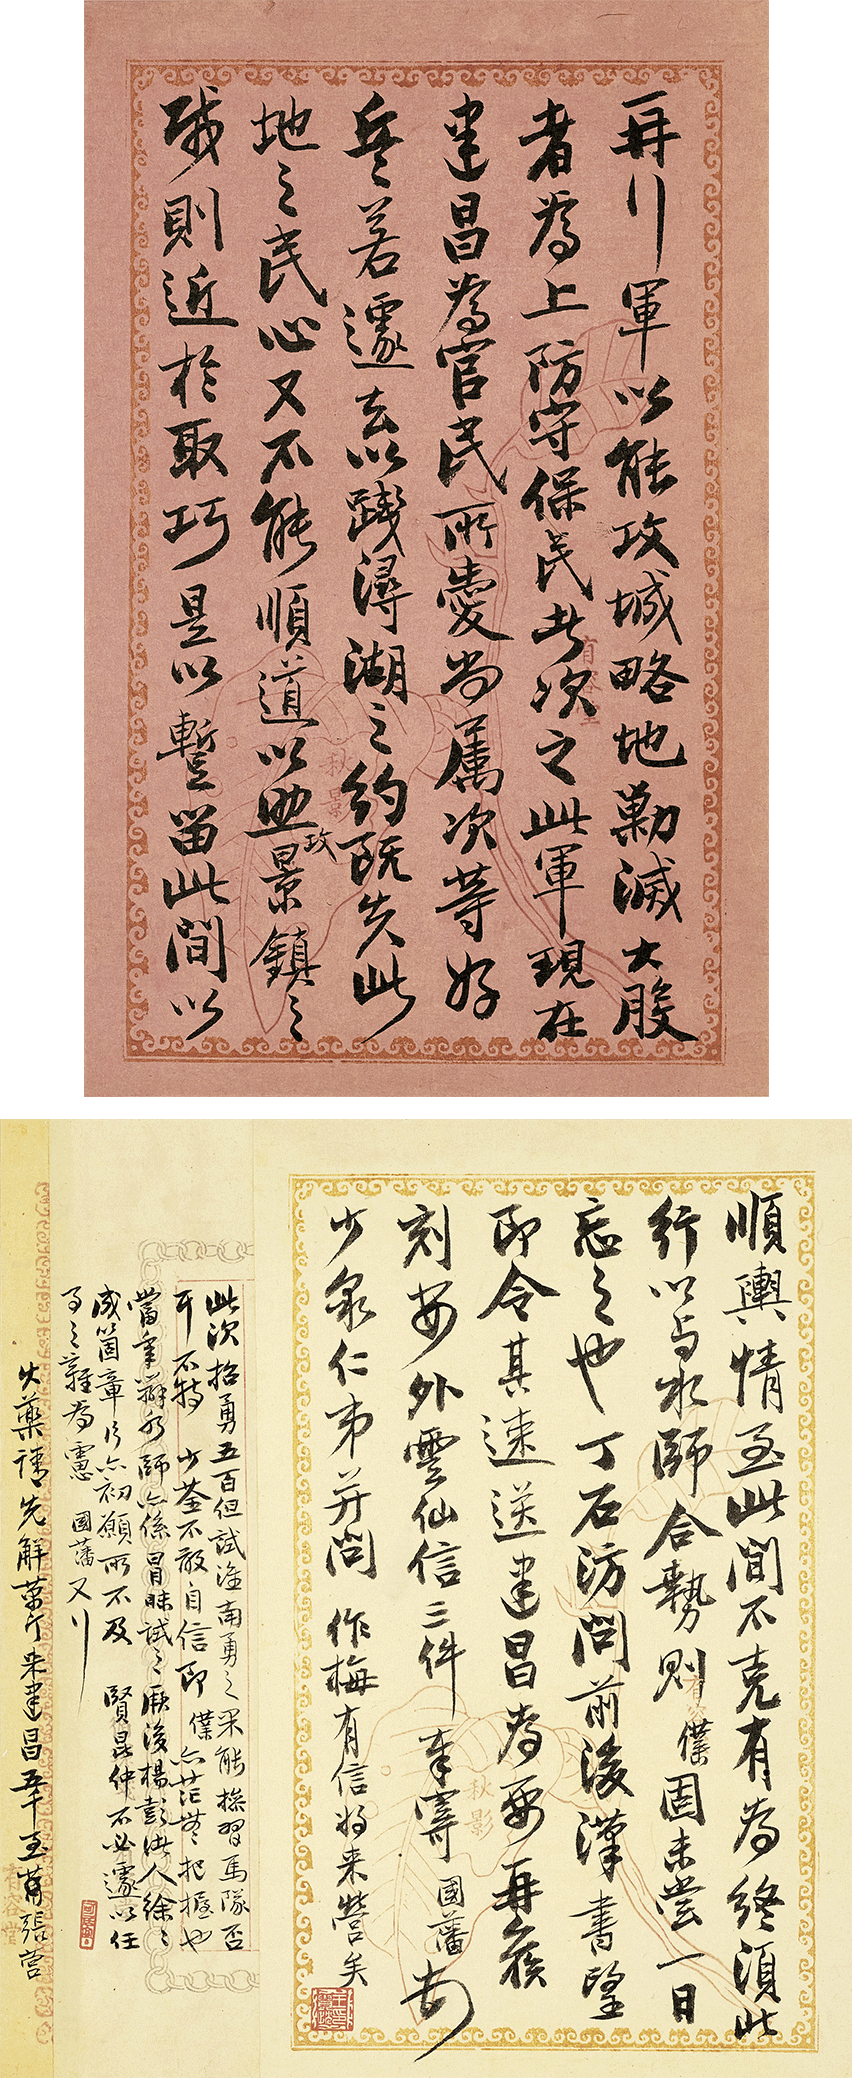 再行軍以能攻城略地勦滅大股
者為上防守保民者次之此軍現在
建昌為官民所愛尚屬次等好
兵若遽去以踐潯湖之約既失此
地之民心又不能順道以助攻景鎮之
賊則近於取巧是以暫留此間以
順輿情至此間不克有為終須此
行以與水師合勢則僕固未嘗一日
忘之也丁石汸問前後漢書望
即令其速送建昌為要再候
刻安外雲仙信三件奉寄國藩頓
少泉仁弟并問 作梅有信將來營矣
此次招勇五百但試淮南勇之果能操習馬隊否
耳不特 少荃不敢自信即僕亦茫無把握也
當年辦水師亦係冒昧試之厥後楊彭諸人徐徐
成箇章片亦初願所不及 賢昆仲不必遽以任
事之難為慮 國藩又行
火藥請先解萬斤來建昌五千至黃張營
有容堂
秋影